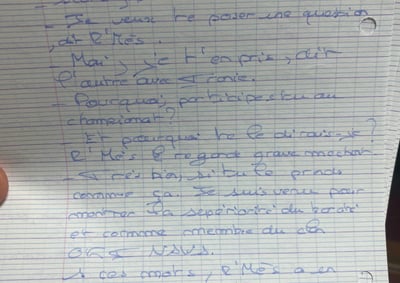 - Je veux te poser une question
, dit R'Mès.
- Mai, je t'en pris, dit
l'autre avec ironie.
- Pourquoi, participes-tu au
championat?
- Et pourquoi te le dirais-je?
R'Mès le regarda
- Très bien, si tu le prends
comme ça. Je suis venu pour
montrer la sepériorité du
et comme membre du clan
A ces mots, R'Mès a en